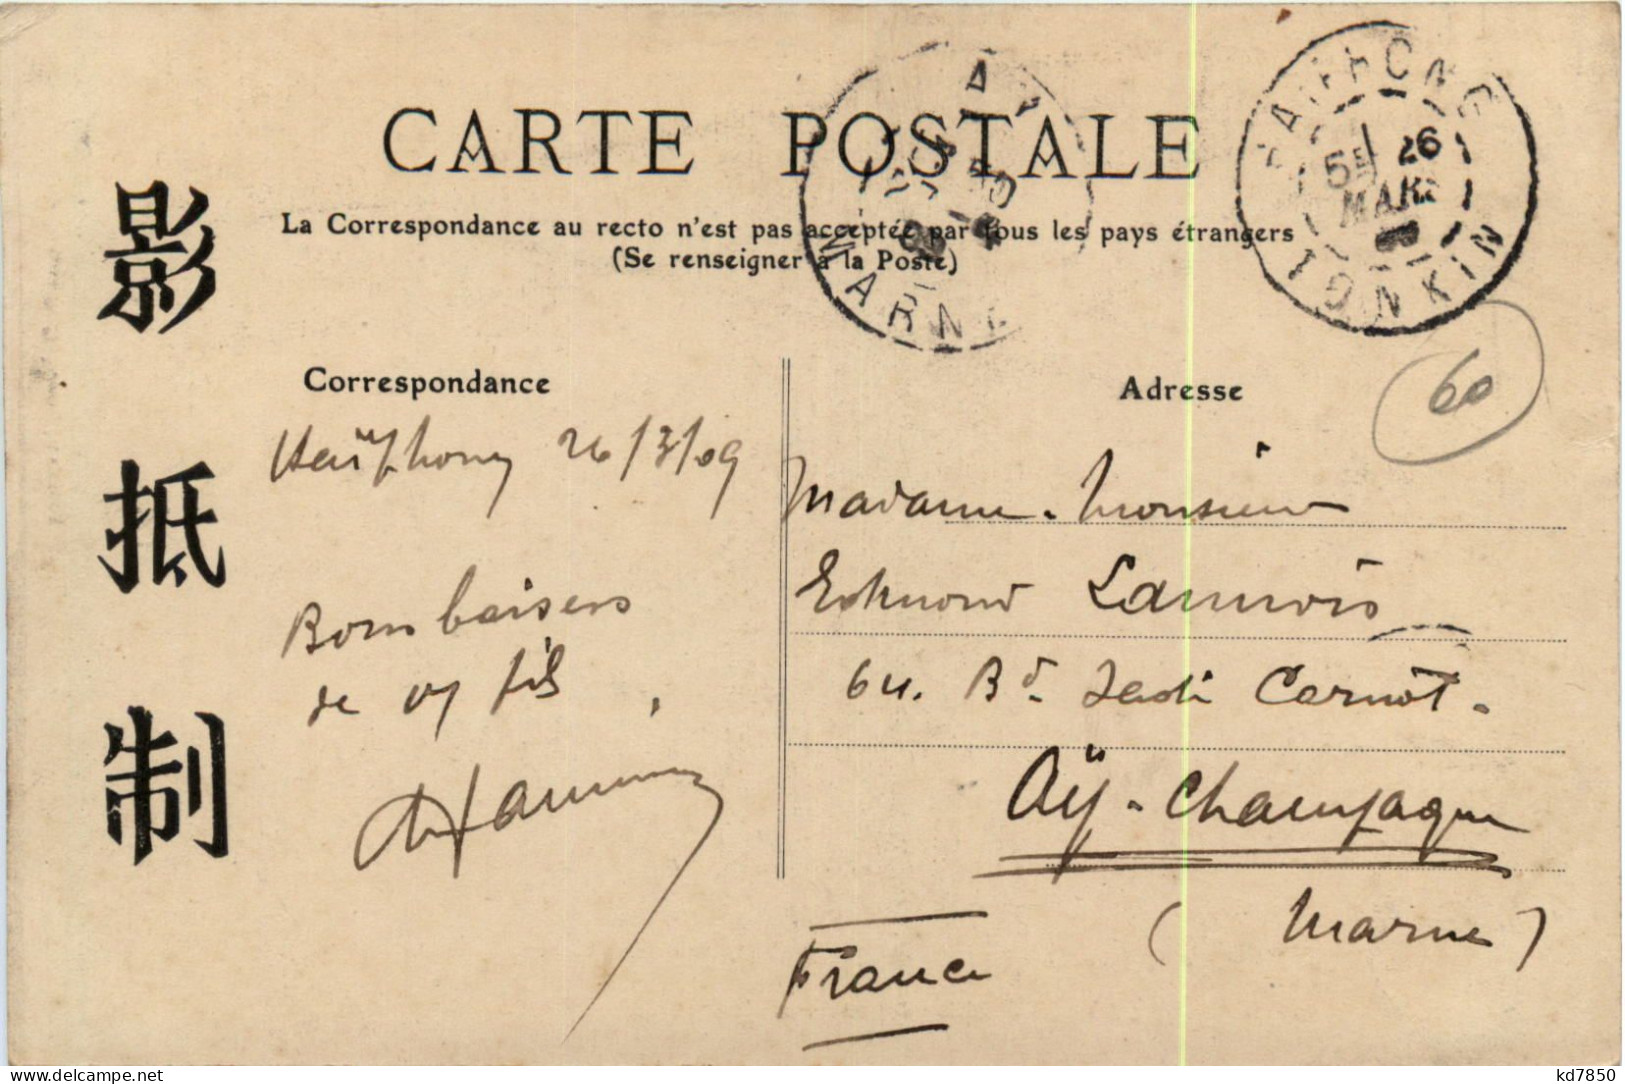 CARTE POSTALE
La Correspondance au recto n'est pas acceptée par tous les pays étrangers
(Se renseigner à la Poste)
影
抵
制
AY
MARNE
HAIPHONG
5E 26
MARS
TONKIN
60
Correspondance
Haïphong 26/3/09
Bons baisers
de vs fils
Adresse
Madame - Monsieur
Edmond Lannois
64. Bd Sadi Carnot.
Aÿ-Champagne
(Marne)
France
kd7850